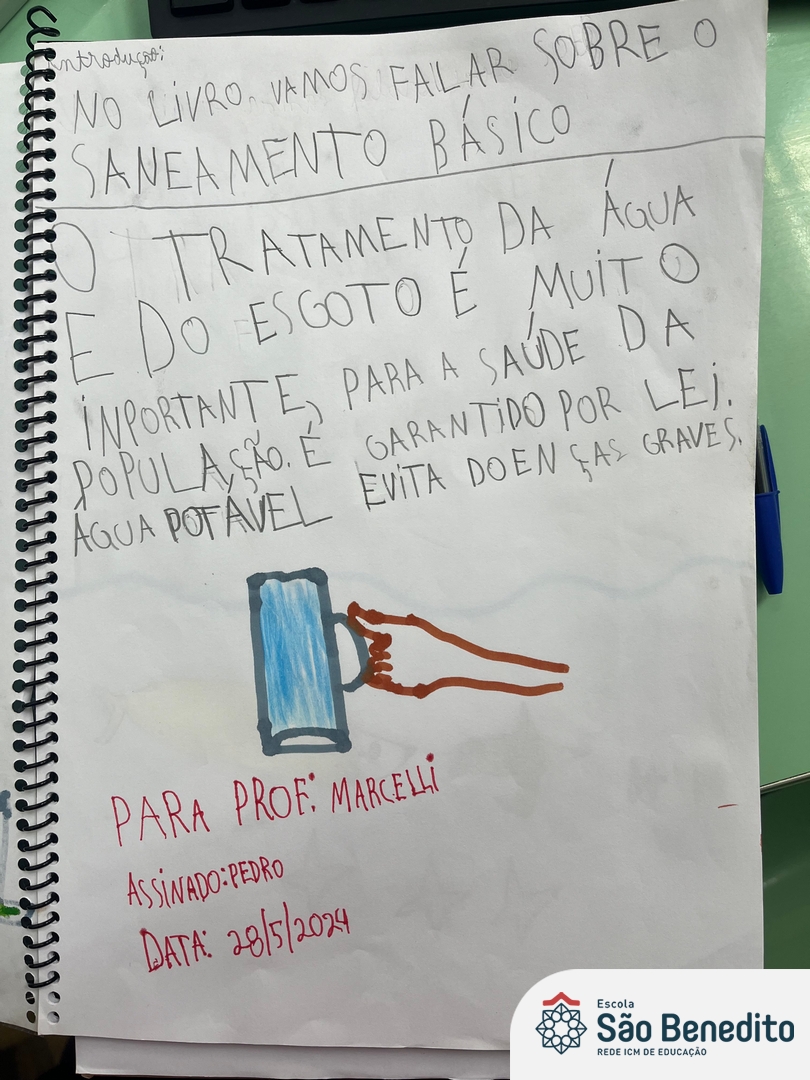 introdução:
NO LIVRO, VAMOS FALAR SOBRE O
SANEAMENTO BÁSICO
O TRATAMENTO DA ÁGUA
E DO ESGOTO É MUITO
INPORTANTE, PARA A SAÚDE DA
POPULAÇÃO. É GARANTIDO POR LEI.
ÁGUA POTÁVEL EVITA DOENÇAS GRAVES.
PARA PROF: MARCELLI
ASSINADO: PEDRO
DATA: 28/5/2024
Escola
São Benedito
REDE ICM DE EDUCAÇÃO